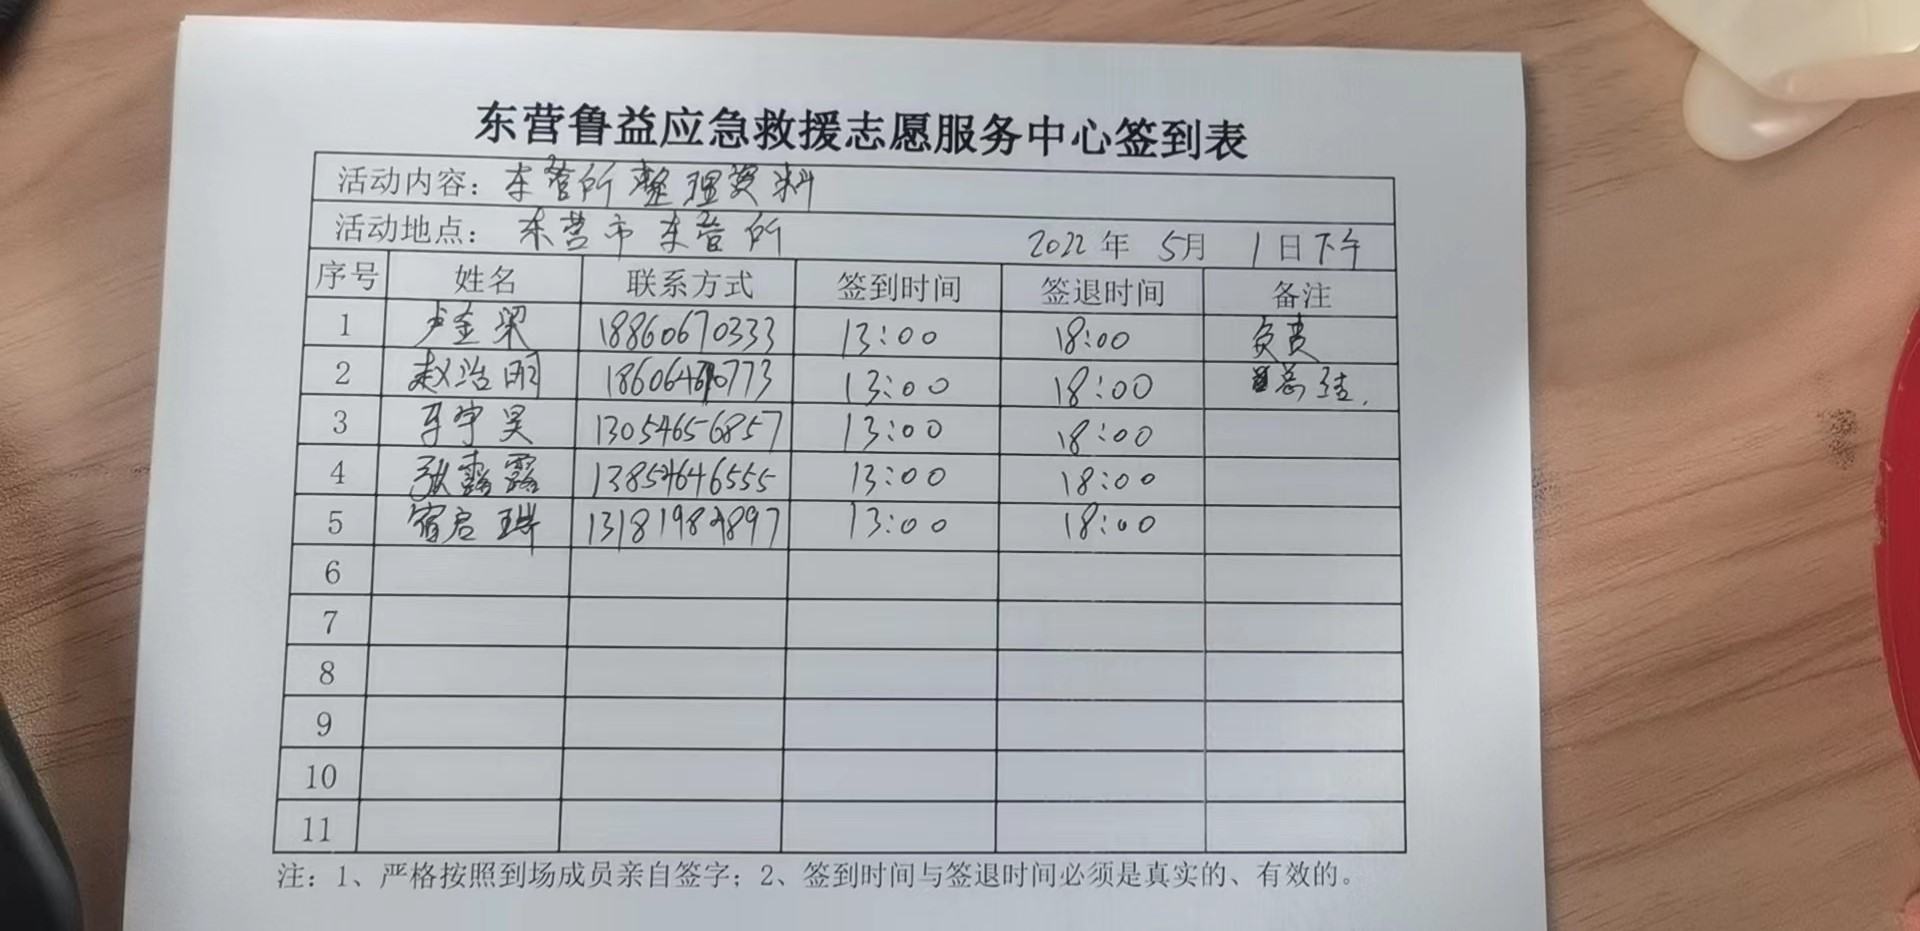 东营鲁益应急救援志愿服务中心签到表
活动内容：车管所整理资料
活动地点：东营市车管所 2022年 5月 1日下午
序号 姓名 联系方式 签到时间 签退时间 备注
1 卢金梁 18860670333 13:00 18:00 负责
2 赵治明 13:00 18:00 总结.
3 宇昊 13054656857 13:00 18:00
4 张露露 13854646555 13:00 18:00
5 宿启 13:00 18:00
6
7
8
9
10
11
注：1、严格按照到场成员亲自签字；2、签到时间与签退时间必须是真实的、有效的。